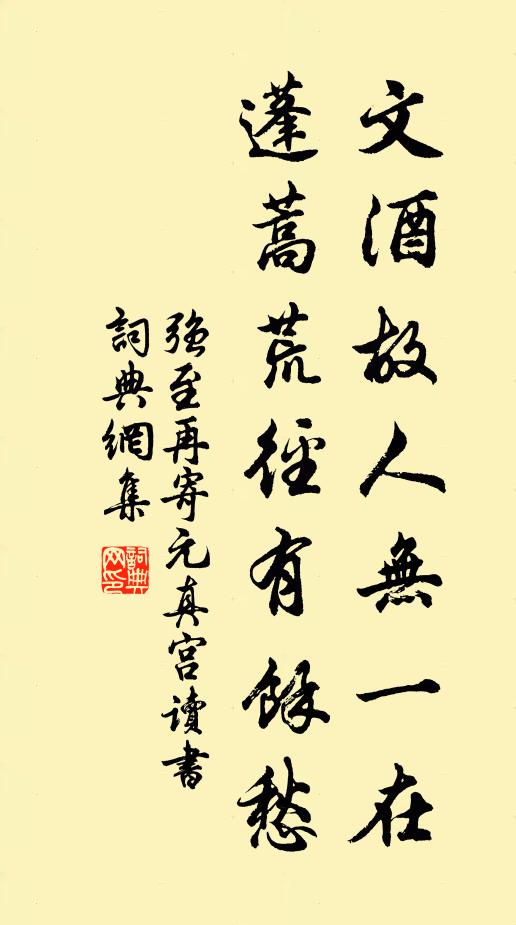 文酒故人無一在
蓬蒿荒徑有餘愁
強至再寄元真宮讀書
詞典網集
詞典网印